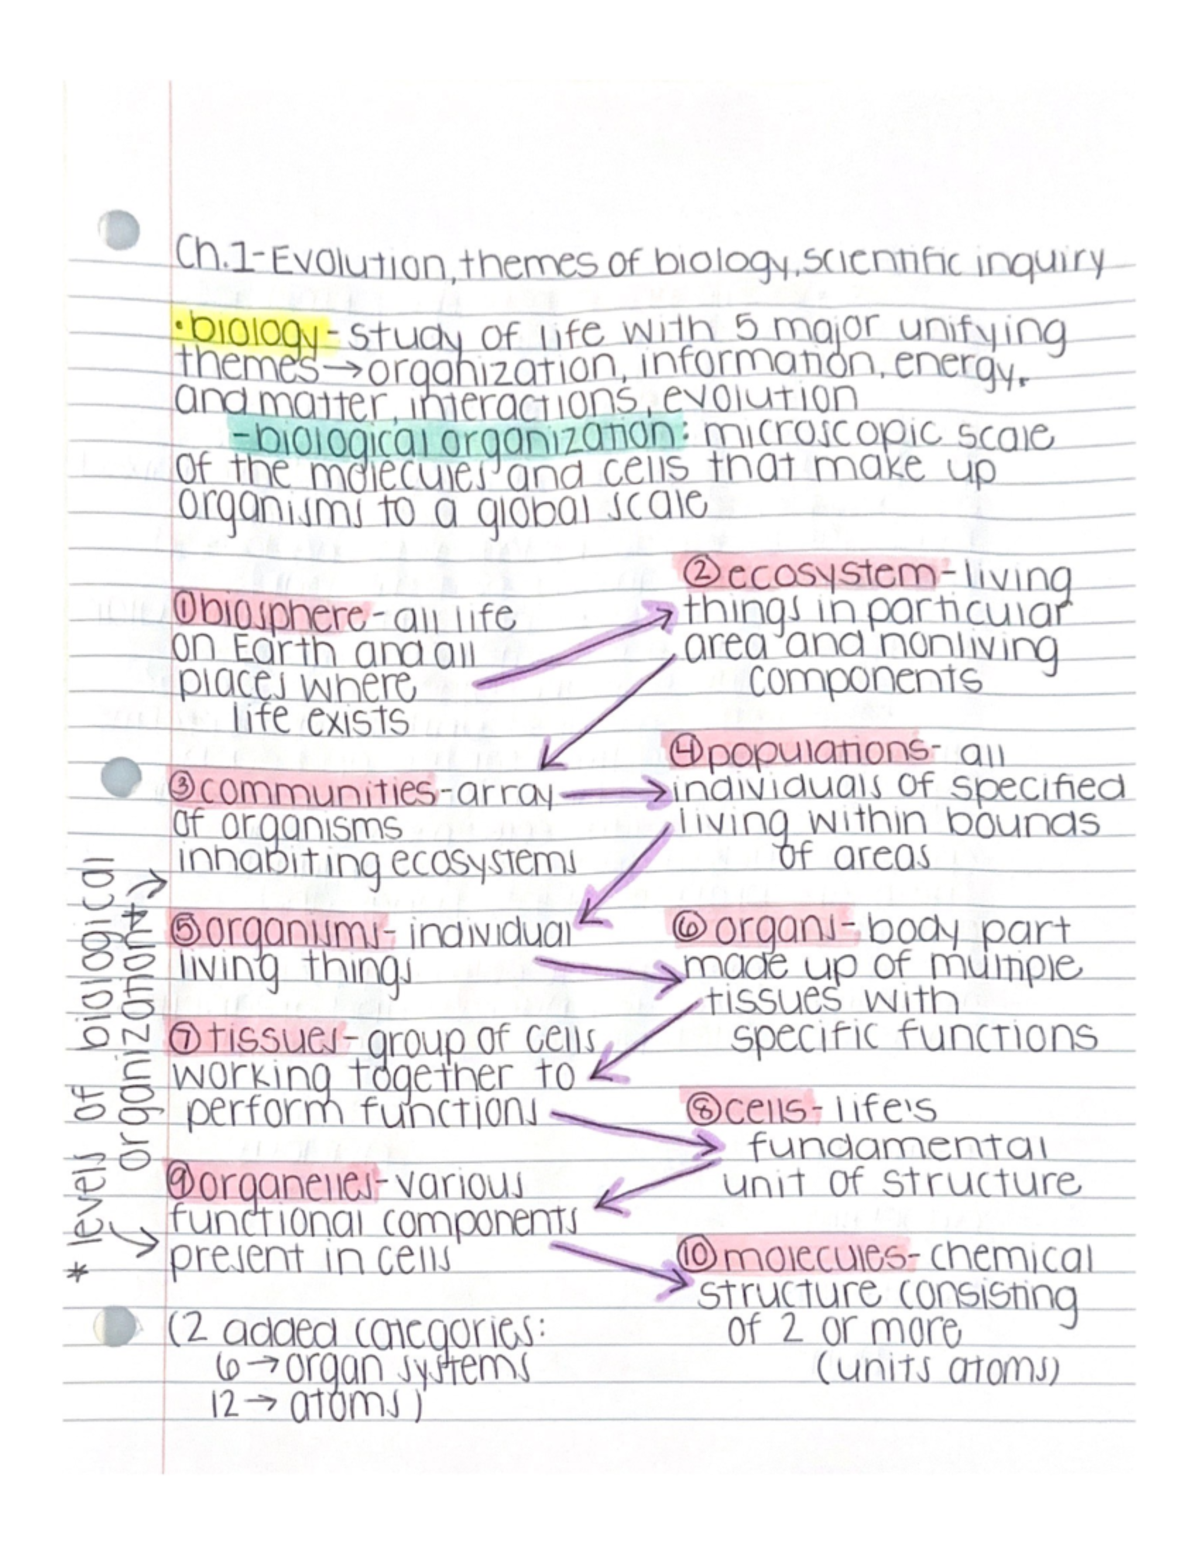 Ch.1-Evolution, themes of biology, scientific inquiry
•biology- study of life with 5 major unifying
themes→organization, information, energy,
and matter, interactions, evolution
-biological organization: microscopic scale
of the molecules and cells that make up
organisms to a global scale
①biosphere- all life
on Earth and all
places where
life exists
②ecosystem-living
things in particular
area and nonliving
components
③communities-array
of organisms
inhabiting ecosystems
④populations- all
individuals of specified
living within bounds
of areas
⑤organisms- individual
living things
⑥organs- body part
made up of multiple
tissues with
specific functions
⑦tissues- group of cells
working together to
perform functions
⑧cells- life's
fundamental
unit of structure
⑨organelles-various
functional components
present in cells
⑩molecules- chemical
structure consisting
of 2 or more
(units atoms)
(2 added categories:
6→organ systems
12→ atoms)
* levels of biological
organization*